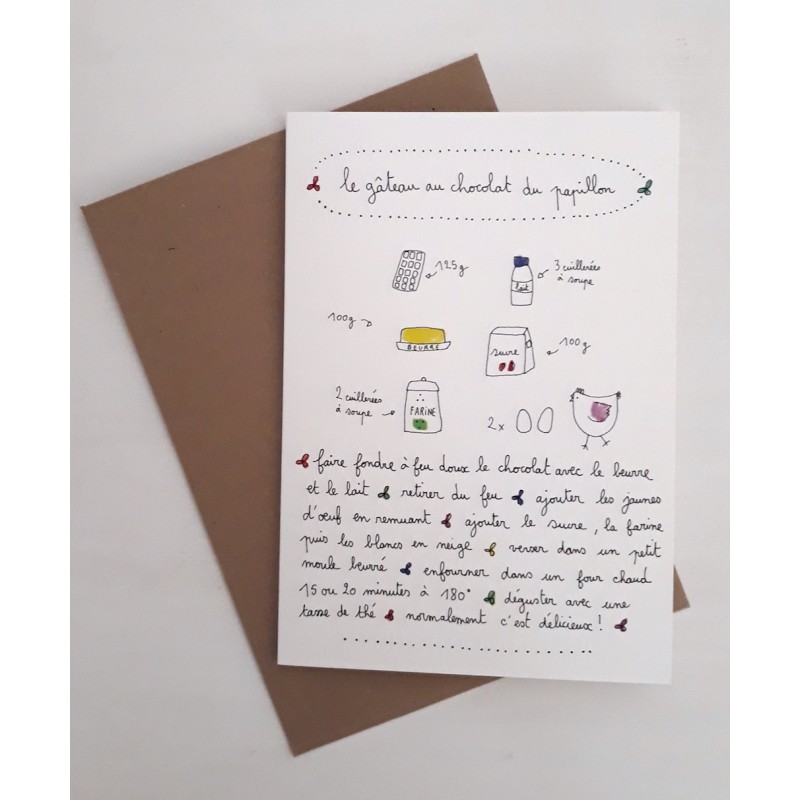 le gâteau au chocolat du papillon
125g
3 cuillerées
à soupe
lait
100g
BEURRE
sucre
100g
2 cuillerées
à soupe
FARINE
2x
faire fondre à feu doux le chocolat avec le beurre
et le lait retirer du feu ajouter les jaunes
d'œuf en remuant ajouter le sucre, la farine
puis les blancs en neige verser dans un petit
moule beurré enfourner dans un four chaud
15 ou 20 minutes à 180° déguster avec une
tasse de thé normalement c'est délicieux!